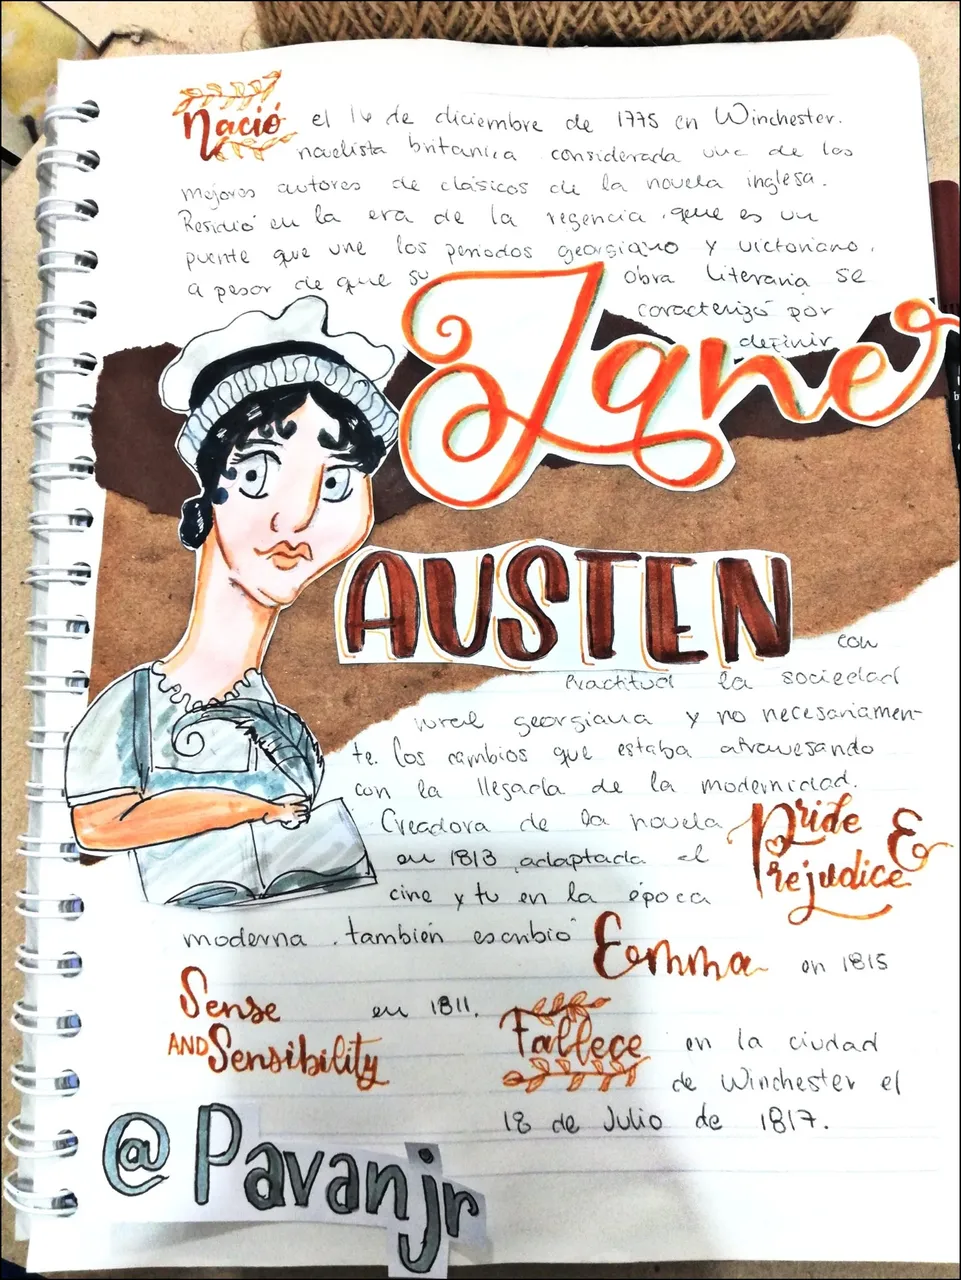 Nació el 16 de diciembre de 1775 en Winchester.
novelista britanica considerada una de los
mejores autores de clásicos de la novela inglesa.
Residió en la era de la regencia, que es un
puente que une los periodos georgiano y victoriano,
a pesar de que su obra literaria se
caracterizó por
definir
Jane
AUSTEN
con
exactitud la sociedad
rural georgiana y no necesariamen-
te. los cambios que estaba atravesando
con la llegada de la modernidad.
Creadora de la novela Pride &
Prejudice
en 1813 adaptada al
cine y tv en la época
moderna. también escribió Emma en 1815
Sense
AND Sensibility
en 1811.
Fallece en la ciudad
de Winchester el
18 de Julio de 1817.
@Pavanjr